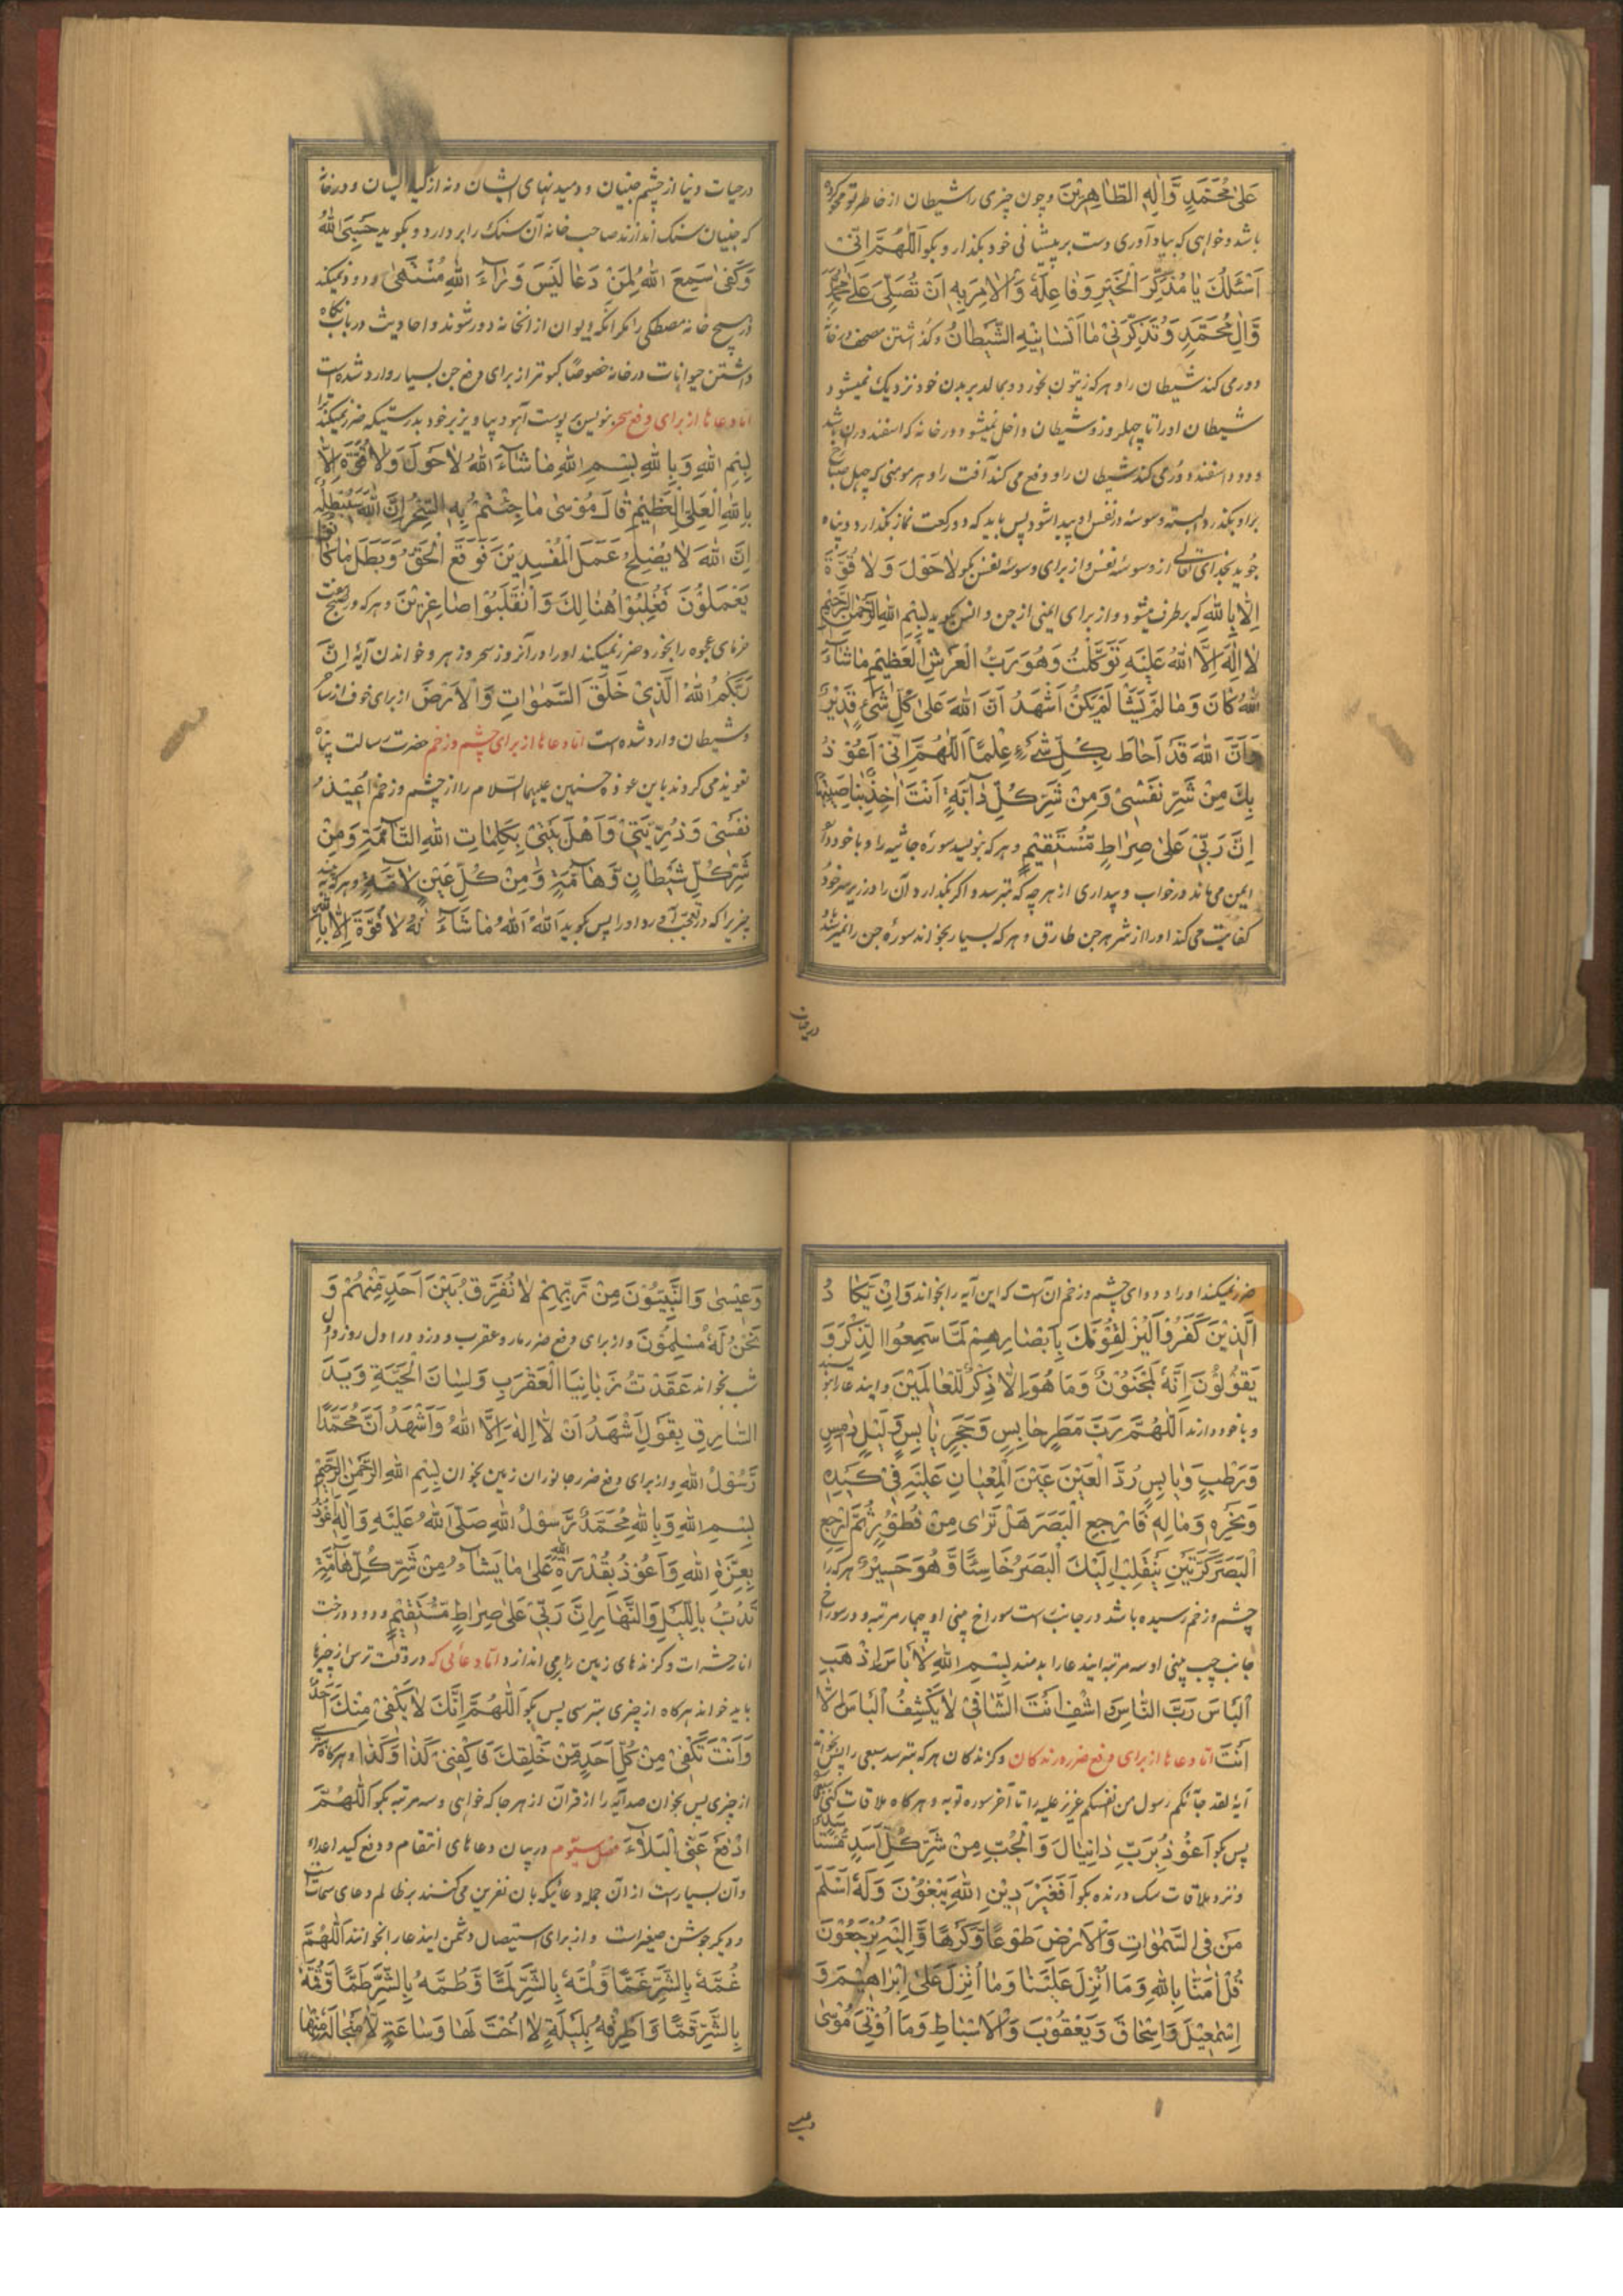 عَلىٰ مُحَمَّدٍ وَّاٰلِهِ الطَّاهِرِيْنَ و چون چیزی را شیطان از خاطر تو محو کرده
باشد و خواهی که بیاد آوری دست بر پیشانی خود بگذار و بگو اَللّٰهُمَّ اِنّيْ
اَسْئَلُكَ يَا مُذَكِّرَ الْخَيْرِ وَفَاعِلَهُ وَالْاٰمِرَ بِهِ اَنْ تُصَلِّيَ عَلىٰ مُحَمَّدٍ
وَّاٰلِ مُحَمَّدٍ وَتُذَكِّرَنِيْ مَا اَنْسَانِيْهِ الشَّيْطَانُ و گذاشتن مصحف در خانه
دور می کند شیطان را و هر که زیتون بخورد و بمالد بر بدن خود نزدیک نمیشود
شیطان او را تا چهل روز و شیطان داخل نمیشود در خانه که اسفند در ان باشد
و دود اسفند دور می کند شیطان را و دفع می کند آفت را و هر مومنی که چهل صباح
براو بگذرد البته وسوسه در نفس او پیدا شود پس باید که دو رکعت نماز بگذارد و پناه
جوید بخدای تعالی از وسوسه نفس و از برای وسوسه نفس بگو لَا حَوْلَ وَلَا قُوَّةَ
اِلَّا بِاللهِ که برطرف میشود و از برای ایمنی از جن و انس بگوید بِسْمِ اللهِ الرَّحْمٰنِ الرَّحِيْمِ
لَا اِلٰهَ اِلَّا اللهُ عَلَيْهِ تَوَكَّلْتُ وَهُوَ رَبُّ الْعَرْشِ الْعَظِيْمِ مَا شَآءَ
اللهُ كَانَ وَمَا لَمْ يَشَأْ لَمْ يَكُنْ اَشْهَدُ اَنَّ اللهَ عَلىٰ كُلِّ شَيْءٍ قَدِيْرٌ
وَاَنَّ اللهَ قَدْ اَحَاطَ بِكُلِّ شَيْءٍ عِلْمًا اَللّٰهُمَّ اِنِّيْ اَعُوْذُ
بِكَ مِنْ شَرِّ نَفْسِيْ وَمِنْ شَرِّ كُلِّ دَآبَّةٍ اَنْتَ اٰخِذٌ بِنَاصِيَتِهَا
اِنَّ رَبِّيْ عَلىٰ صِرَاطٍ مُّسْتَقِيْمٍ و هر که بنویسد سوره جاثیه را و با خود دارد
ایمن می ماند در خواب و بیداری از هر چه که بترسد و اگر بگذارد آن را در زیر سر خود
کفایت می کند او را از شر هر جن طارق و هر که بسیار بخواند سوره جن را نمیرسد
در حیات دنیا از چشم جنیان و دمیدنهای ایشان و نه از کید ایشان و در خانه
که جنیان سنک اندازند صاحب خانه آن سنک را بردارد و بگوید حَسْبِيَ اللهُ
وَكَفىٰ سَمِعَ اللهُ لِمَنْ دَعَا لَيْسَ وَرَآءَ اللهِ مُنْتَهىٰ و دود نمیکند
در هیچ خانه مصطکی را مگر آنکه دیوان از انخانه دور شوند و احادیث در باب نگاه
داشتن حیوانات در خانه خصوصًا کبوتر از برای دفع جن بسیار وارد شده است
اما دعاها از برای دفع سحر بنویس بر پوست آهو و بیاویز بر خود بدرستیکه ضرر نمیکند ترا
بِسْمِ اللهِ وَبِاللهِ بِسْمِ اللهِ مَا شَآءَ اللهُ لَا حَوْلَ وَلَا قُوَّةَ اِلَّا
بِاللهِ الْعَلِيِّ الْعَظِيْمِ قَالَ مُوْسٰى مَا جِئْتُمْ بِهِ السِّحْرُ اِنَّ اللهَ سَيُبْطِلُهُ
اِنَّ اللهَ لَا يُصْلِحُ عَمَلَ الْمُفْسِدِيْنَ فَوَقَعَ الْحَقُّ وَبَطَلَ مَا كَانُوْا
يَعْمَلُوْنَ فَغُلِبُوْا هُنَالِكَ وَانْقَلَبُوْا صَاغِرِيْنَ و هر که در صبح هفت
خرمای عجوه را بخورد ضرر نمیکند او را در آنروز سحر و زهر و خواندن آیۀ اِنَّ
رَبَّكُمُ اللهُ الَّذِيْ خَلَقَ السَّمٰوَاتِ وَالْاَرْضَ از برای خوف از ساحر
و شیطان وارد شده است اما دعاها از برای چشم و زخم حضرت رسالت پناه
تعویذ می کردند باین عوذه حسنین علیهما السلام را از چشم و زخم اُعِيْذُ
نَفْسِيْ وَذُرِّيَّتِيْ وَاَهْلَ بَيْتِيْ بِكَلِمَاتِ اللهِ التَّآمَّةِ وَمِنْ
شَرِّ كُلِّ شَيْطَانٍ وَّهَآمَّةٍ وَّمِنْ كُلِّ عَيْنٍ لَآمَّةٍ و هر که به بیند
چیزیرا که در تعجب آورد او را پس بگوید اَللهُ اَللهُ مَا شَآءَ اللهُ لَا قُوَّةَ اِلَّا بِاللهِ
ضرر نمیکند او را و دوای چشم و زخم آن است که این آیه را بخواند وَاِنْ يَّكَادُ
الَّذِيْنَ كَفَرُوْا لَيُزْلِقُوْنَكَ بِاَبْصَارِهِمْ لَمَّا سَمِعُوا الذِّكْرَ وَ
يَقُوْلُوْنَ اِنَّهُ لَمَجْنُوْنٌ وَمَا هُوَ اِلَّا ذِكْرٌ لِّلْعَالَمِيْنَ و ایندعا را بنویسند
و باخود دارند اَللّٰهُمَّ رَبَّ مَطَرٍ حَابِسٍ وَحَجَرٍ يَابِسٍ وَّلَيْلٍ دَامِسٍ
وَرَطْبٍ وَيَابِسٍ رُدَّ الْعَيْنَ عَيْنَ الْمِعْيَانِ عَلَيْهِ فِيْ كَبِدِهِ
وَنَحْرِهِ وَمَالِهِ فَارْجِعِ الْبَصَرَ هَلْ تَرٰى مِنْ فُطُوْرٍ ثُمَّ ارْجِعِ
الْبَصَرَ كَرَّتَيْنِ يَنْقَلِبْ اِلَيْكَ الْبَصَرُ خَاسِئًا وَّهُوَ حَسِيْرٌ هر که را
چشم و زخم رسیده باشد در جانب راست سوراخ بینی او چهار مرتبه و در سوراخ
جانب چپ بینی او سه مرتبه ایندعا را بدمند بِسْمِ اللهِ لَا بَأْسَ اذْهَبِ
الْبَأْسَ رَبَّ النَّاسِ وَاشْفِ اَنْتَ الشَّافِيْ لَا يَكْشِفُ الْبَأْسَ اِلَّا
اَنْتَ اما دعاها از برای دفع ضرر درندگان و گزندگان هر که بترسد سبعی را پس بخواند
آیۀ لقد جآئکم رسول من انفسکم عزیز علیه را تا آخر سوره توبه و هر گاه ملاقات کنی سبعی
پس بگو اَعُوْذُ بِرَبِّ دَانِيَالَ وَالْجُبِّ مِنْ شَرِّ كُلِّ اَسَدٍ مُّسْتَأْسِدٍ
و نزد ملاقات سک درنده بگو اَفَغَيْرَ دِيْنِ اللهِ يَبْغُوْنَ وَلَهُ اَسْلَمَ
مَنْ فِي السَّمٰوَاتِ وَالْاَرْضِ طَوْعًا وَّكَرْهًا وَّاِلَيْهِ يُرْجَعُوْنَ
قُلْ اٰمَنَّا بِاللهِ وَمَا اُنْزِلَ عَلَيْنَا وَمَا اُنْزِلَ عَلىٰ اِبْرَاهِيْمَ وَ
اِسْمٰعِيْلَ وَاِسْحَاقَ وَيَعْقُوْبَ وَالْاَسْبَاطِ وَمَا اُوْتِيَ مُوْسٰى
وَعِيْسٰى وَالنَّبِيُّوْنَ مِنْ رَّبِّهِمْ لَا نُفَرِّقُ بَيْنَ اَحَدٍ مِّنْهُمْ وَ
نَحْنُ لَهُ مُسْلِمُوْنَ و از برای دفع ضرر مار و عقرب و دزد در اول روز و اول
شب بخواند عَقَدْتُ زَبَانِيَا الْعَقْرَبِ وَلِسَانَ الْحَيَّةِ وَيَدَ
السَّارِقِ بِقَوْلِ اَشْهَدُ اَنْ لَّا اِلٰهَ اِلَّا اللهُ وَاَشْهَدُ اَنَّ مُحَمَّدًا
رَّسُوْلُ اللهِ و از برای دفع ضرر جانوران زمین بخوان بِسْمِ اللهِ الرَّحْمٰنِ الرَّحِيْمِ
بِسْمِ اللهِ وَبِاللهِ مُحَمَّدٌ رَّسُوْلُ اللهِ صَلَّى اللهُ عَلَيْهِ وَاٰلِهِ اَعُوْذُ
بِعِزَّةِ اللهِ وَاَعُوْذُ بِقُدْرَةِ اللهِ عَلىٰ مَا يَشَآءُ مِنْ شَرِّ كُلِّ هَآمَّةٍ
تَدُبُّ بِاللَّيْلِ وَالنَّهَارِ اِنَّ رَبِّيْ عَلىٰ صِرَاطٍ مُّسْتَقِيْمٍ و دود درخت
انار حشرات و گزندهای زمین را می اندازد اما دعائی که در وقت ترس از چیزها
باید خواند هر گاه از چیزی بترسی پس بگو اَللّٰهُمَّ اِنَّكَ لَا يَكْفِيْ مِنْكَ اَحَدٌ
وَاَنْتَ تَكْفِيْ مِنْ كُلِّ اَحَدٍ مِّنْ خَلْقِكَ فَاكْفِنِيْ كَذَا وَكَذَا و هر گاه بترسی
از چیزی پس بخوان صد آیه را از قران از هر جا که خواهی و سه مرتبه بگو اَللّٰهُمَّ
ادْفَعْ عَنِّي الْبَلَآءَ فصل سیوم در بیان دعاهای انتقام و دفع کید اعداء
وآن بسیار است از آن جمله دعائیکه بان نفرین می کنند بر ظالم دعای سمات است
و دیگر جوشن صغیر است و از برای استیصال دشمن ایندعا را بخوانند اَللّٰهُمَّ
غُمَّهُ بِالشَّرِّ غَمًّا وَّلُمَّهُ بِالشَّرِّ لَمًّا وَّطُمَّهُ بِالشَّرِّ طَمًّا وَّقُمَّهُ
بِالشَّرِّ قَمًّا وَّاطْرُقْهُ بِلَيْلَةٍ لَا اُخْتَ لَهَا وَسَاعَةٍ لَّا مَنْجَا لَهُ مِنْهَا